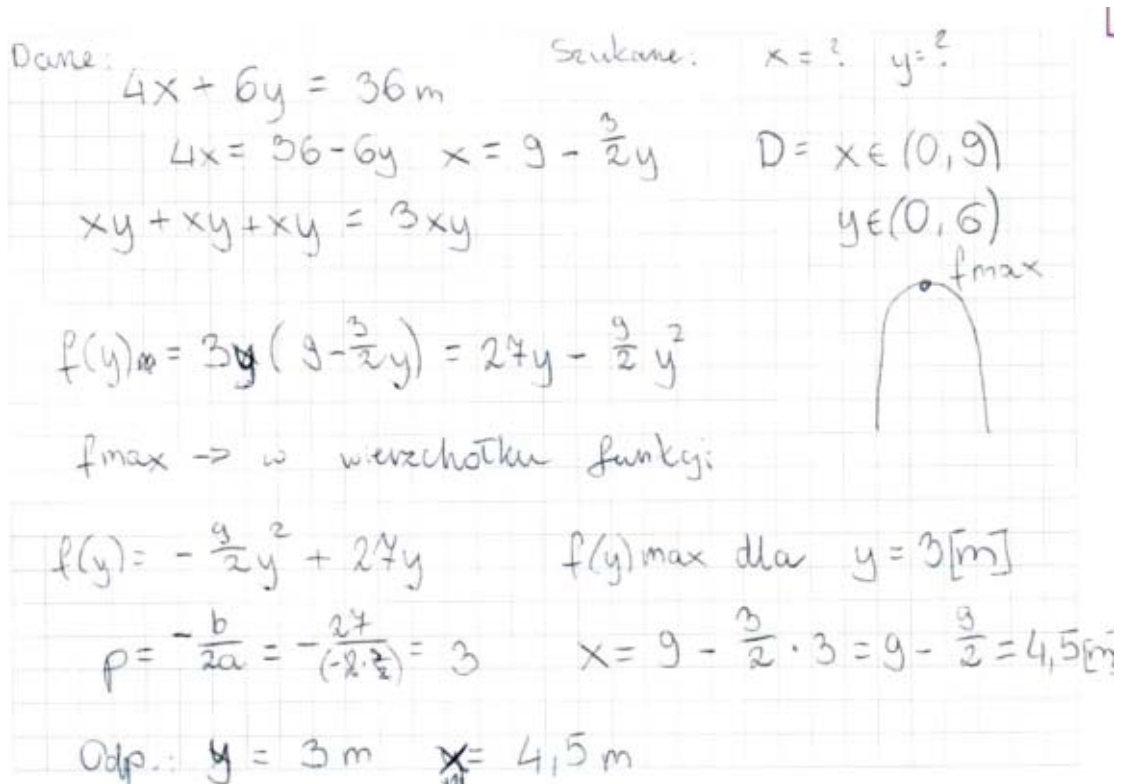 Dane: Szukane: x = ? y = ?
4x + 6y = 36 m
4x = 36 - 6y x = 9 - 3/2 y D = x ∈ (0, 9)
xy + xy + xy = 3xy y ∈ (0, 6)
fmax
f(y) = 3y (9 - 3/2 y) = 27y - 9/2 y²
fmax -> w wierzchołku funkcji
f(y) = - 9/2 y² + 27y f(y) max dla y = 3 [m]
p = - b/2a = - 27/(-2 · 9/2) = 3 x = 9 - 3/2 · 3 = 9 - 9/2 = 4,5 [m]
Odp.: y = 3 m x = 4,5 m